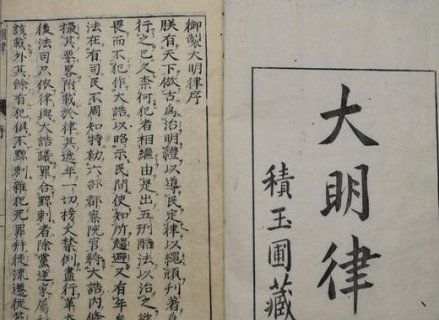 大明律
積玉圃藏
御製大明律序
朕有天下倣古爲治明禮以導民定律以繩頑刊著爲
行之已久奈何犯者相繼由是出五刑酷法以治之欲
畏而不犯作大誥以昭示民間使知所趨避又有年
法在有司民不周知特勑六部都察院官將大誥內條
撮其要畧附載於律其遞年一切榜文禁例盡行革
後法司只依律與大誥議罪合黥刺者除黨逆家屬
該載外其餘有犯俱不黥刺雜犯死罪并徒流遷徙笞
明律